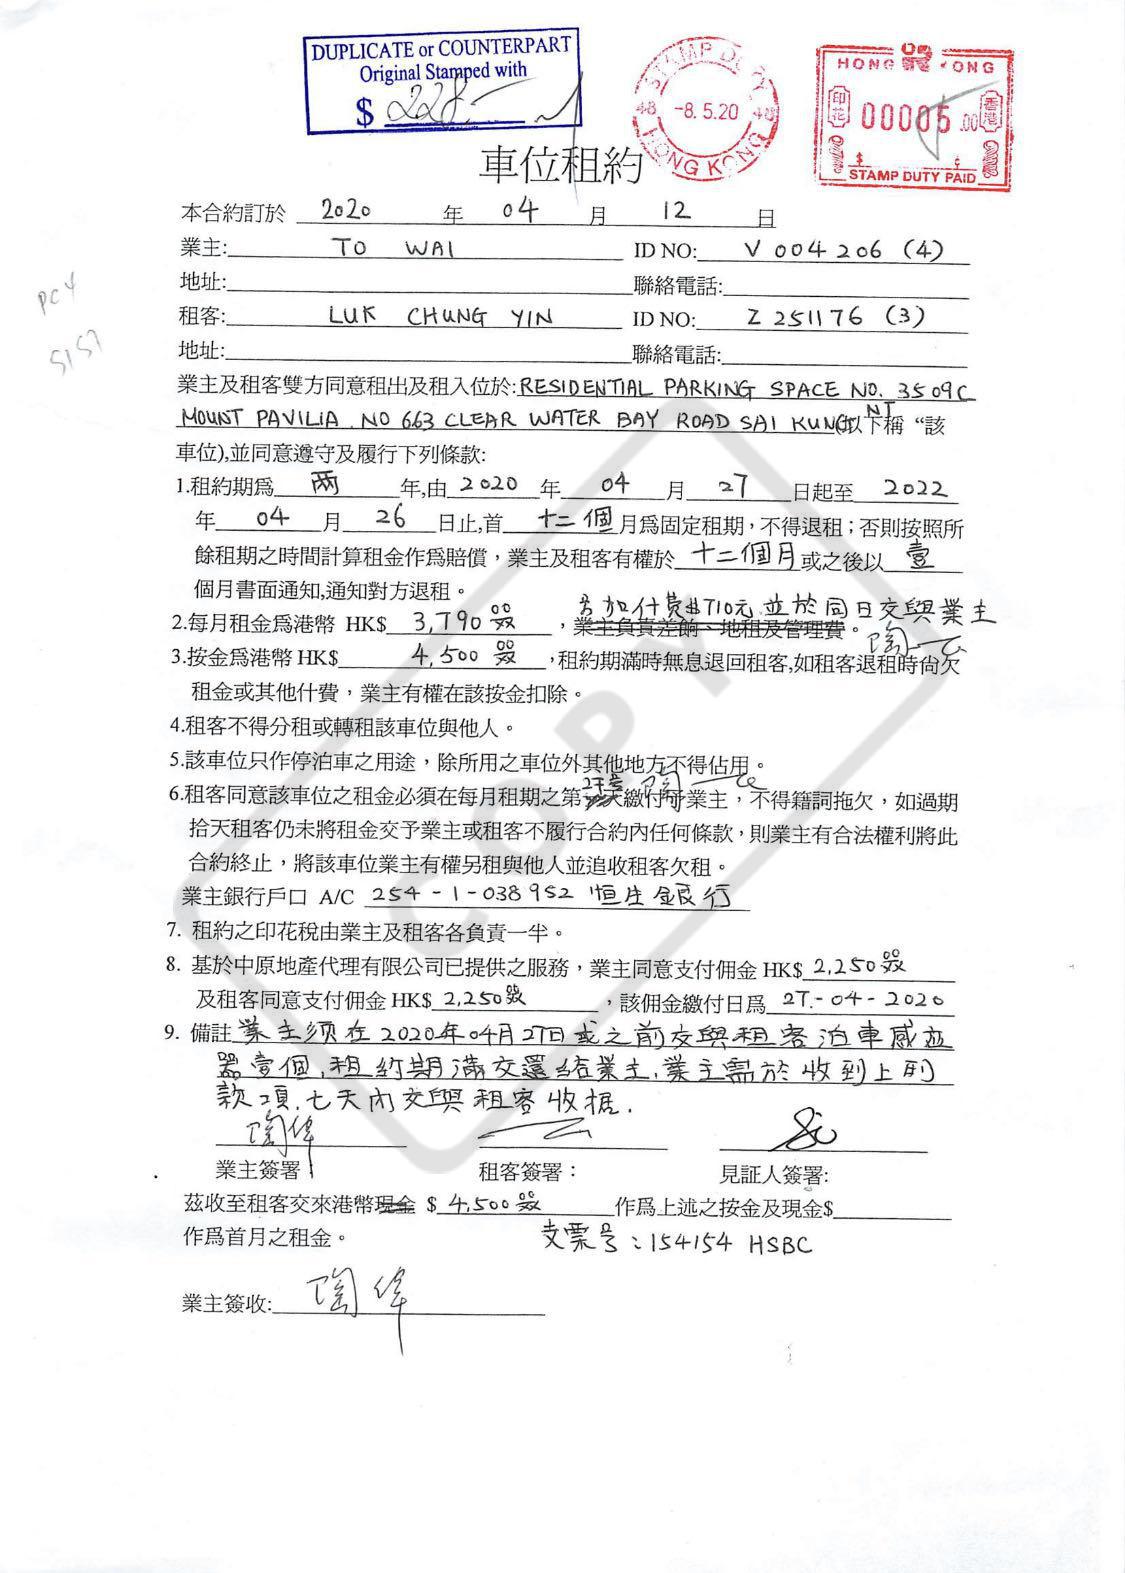 DUPLICATE or COUNTERPART
Original Stamped with
$ 228.-
STAMP DUTY
-8.5.20
HONG KONG
HONG KONG
印花
00005.00
香港
$ ¢
STAMP DUTY PAID
車位租約
本合約訂於 2020 年 04 月 12 日
業主: TO WAI ID NO: V 004206 (4)
地址: 聯絡電話:
PC4
租客: LUK CHUNG YIN ID NO: Z 251176 (3)
5157
地址: 聯絡電話:
業主及租客雙方同意租出及租入位於: RESIDENTIAL PARKING SPACE NO. 3509C
MOUNT PAVILIA. NO 663 CLEAR WATER BAY ROAD SAI KUNG NT (以下稱 “該
車位),並同意遵守及履行下列條款:
1.租約期爲 兩 年,由 2020 年 04 月 27 日起至 2022
年 04 月 26 日止,首 十二個 月爲固定租期，不得退租；否則按照所
餘租期之時間計算租金作爲賠償，業主及租客有權於 十二個月 或之後以 壹
個月書面通知,通知對方退租。
另加付費$710元.並於同日交與業主
2.每月租金爲港幣 HK$ 3,790 ，業主負責差餉、地租及管理費。
3.按金爲港幣 HK$ 4,500 ,租約期滿時無息退回租客,如租客退租時尙欠
租金或其他什費，業主有權在該按金扣除。
4.租客不得分租或轉租該車位與他人。
5.該車位只作停泊車之用途，除所用之車位外其他地方不得佔用。
6.租客同意該車位之租金必須在每月租期之第 天繳付予業主，不得籍詞拖欠，如過期
拾天租客仍未將租金交予業主或租客不履行合約內任何條款，則業主有合法權利將此
合約終止，將該車位業主有權另租與他人並追收租客欠租。
業主銀行戶口 A/C 254-1-038952 恒生銀行
7. 租約之印花稅由業主及租客各負責一半。
8. 基於中原地產代理有限公司已提供之服務，業主同意支付佣金 HK$ 2,250
及租客同意支付佣金 HK$ 2,250 ，該佣金繳付日爲 27.-04-2020
9. 備註 業主须在2020年04月27日或之前交與租客泊車感应
器壹個,租約期滿交還給業主,業主需於收到上列
款項.七天內交與租客收据.
陶偉
業主簽署： 租客簽署： 見証人簽署:
茲收至租客交來港幣現金 $ 4,500 作爲上述之按金及現金$
作爲首月之租金。 支票号：154154 HSBC
業主簽收: 陶偉
COPY